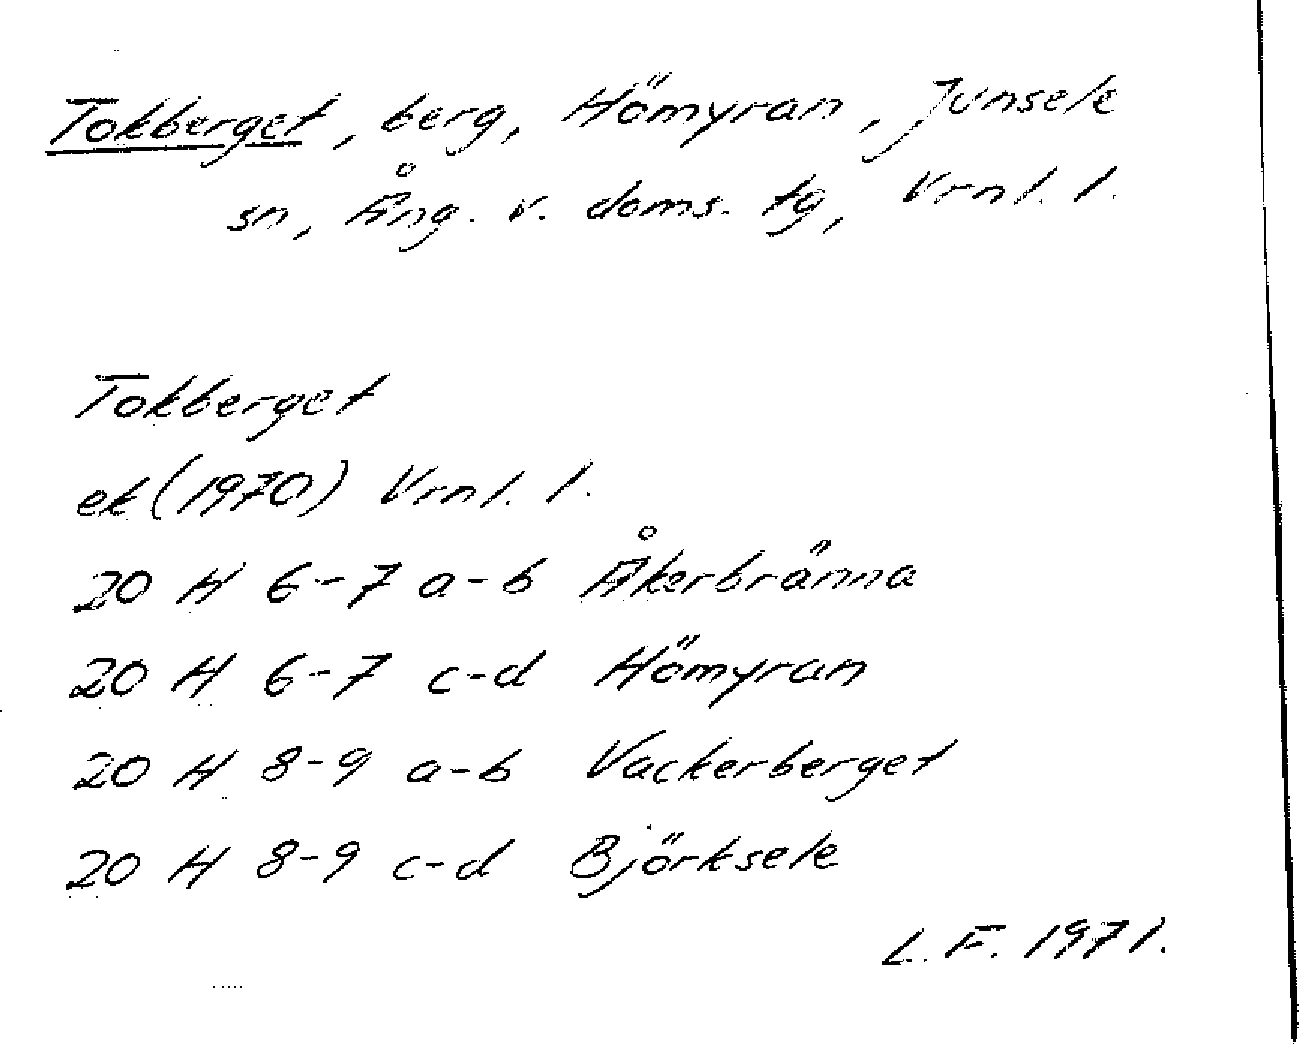 Tokberget, berg, Hömyran, Junsele
sn, Ång. v. doms. tg, Vrnl. l.
Tokberget
ek (1970) Vrnl. l.
20 H 6-7 a-b Åkerbränna
20 H 6-7 c-d Hömyran
20 H 8-9 a-b Vackerberget
20 H 8-9 c-d Björksele
L. F. 1971.